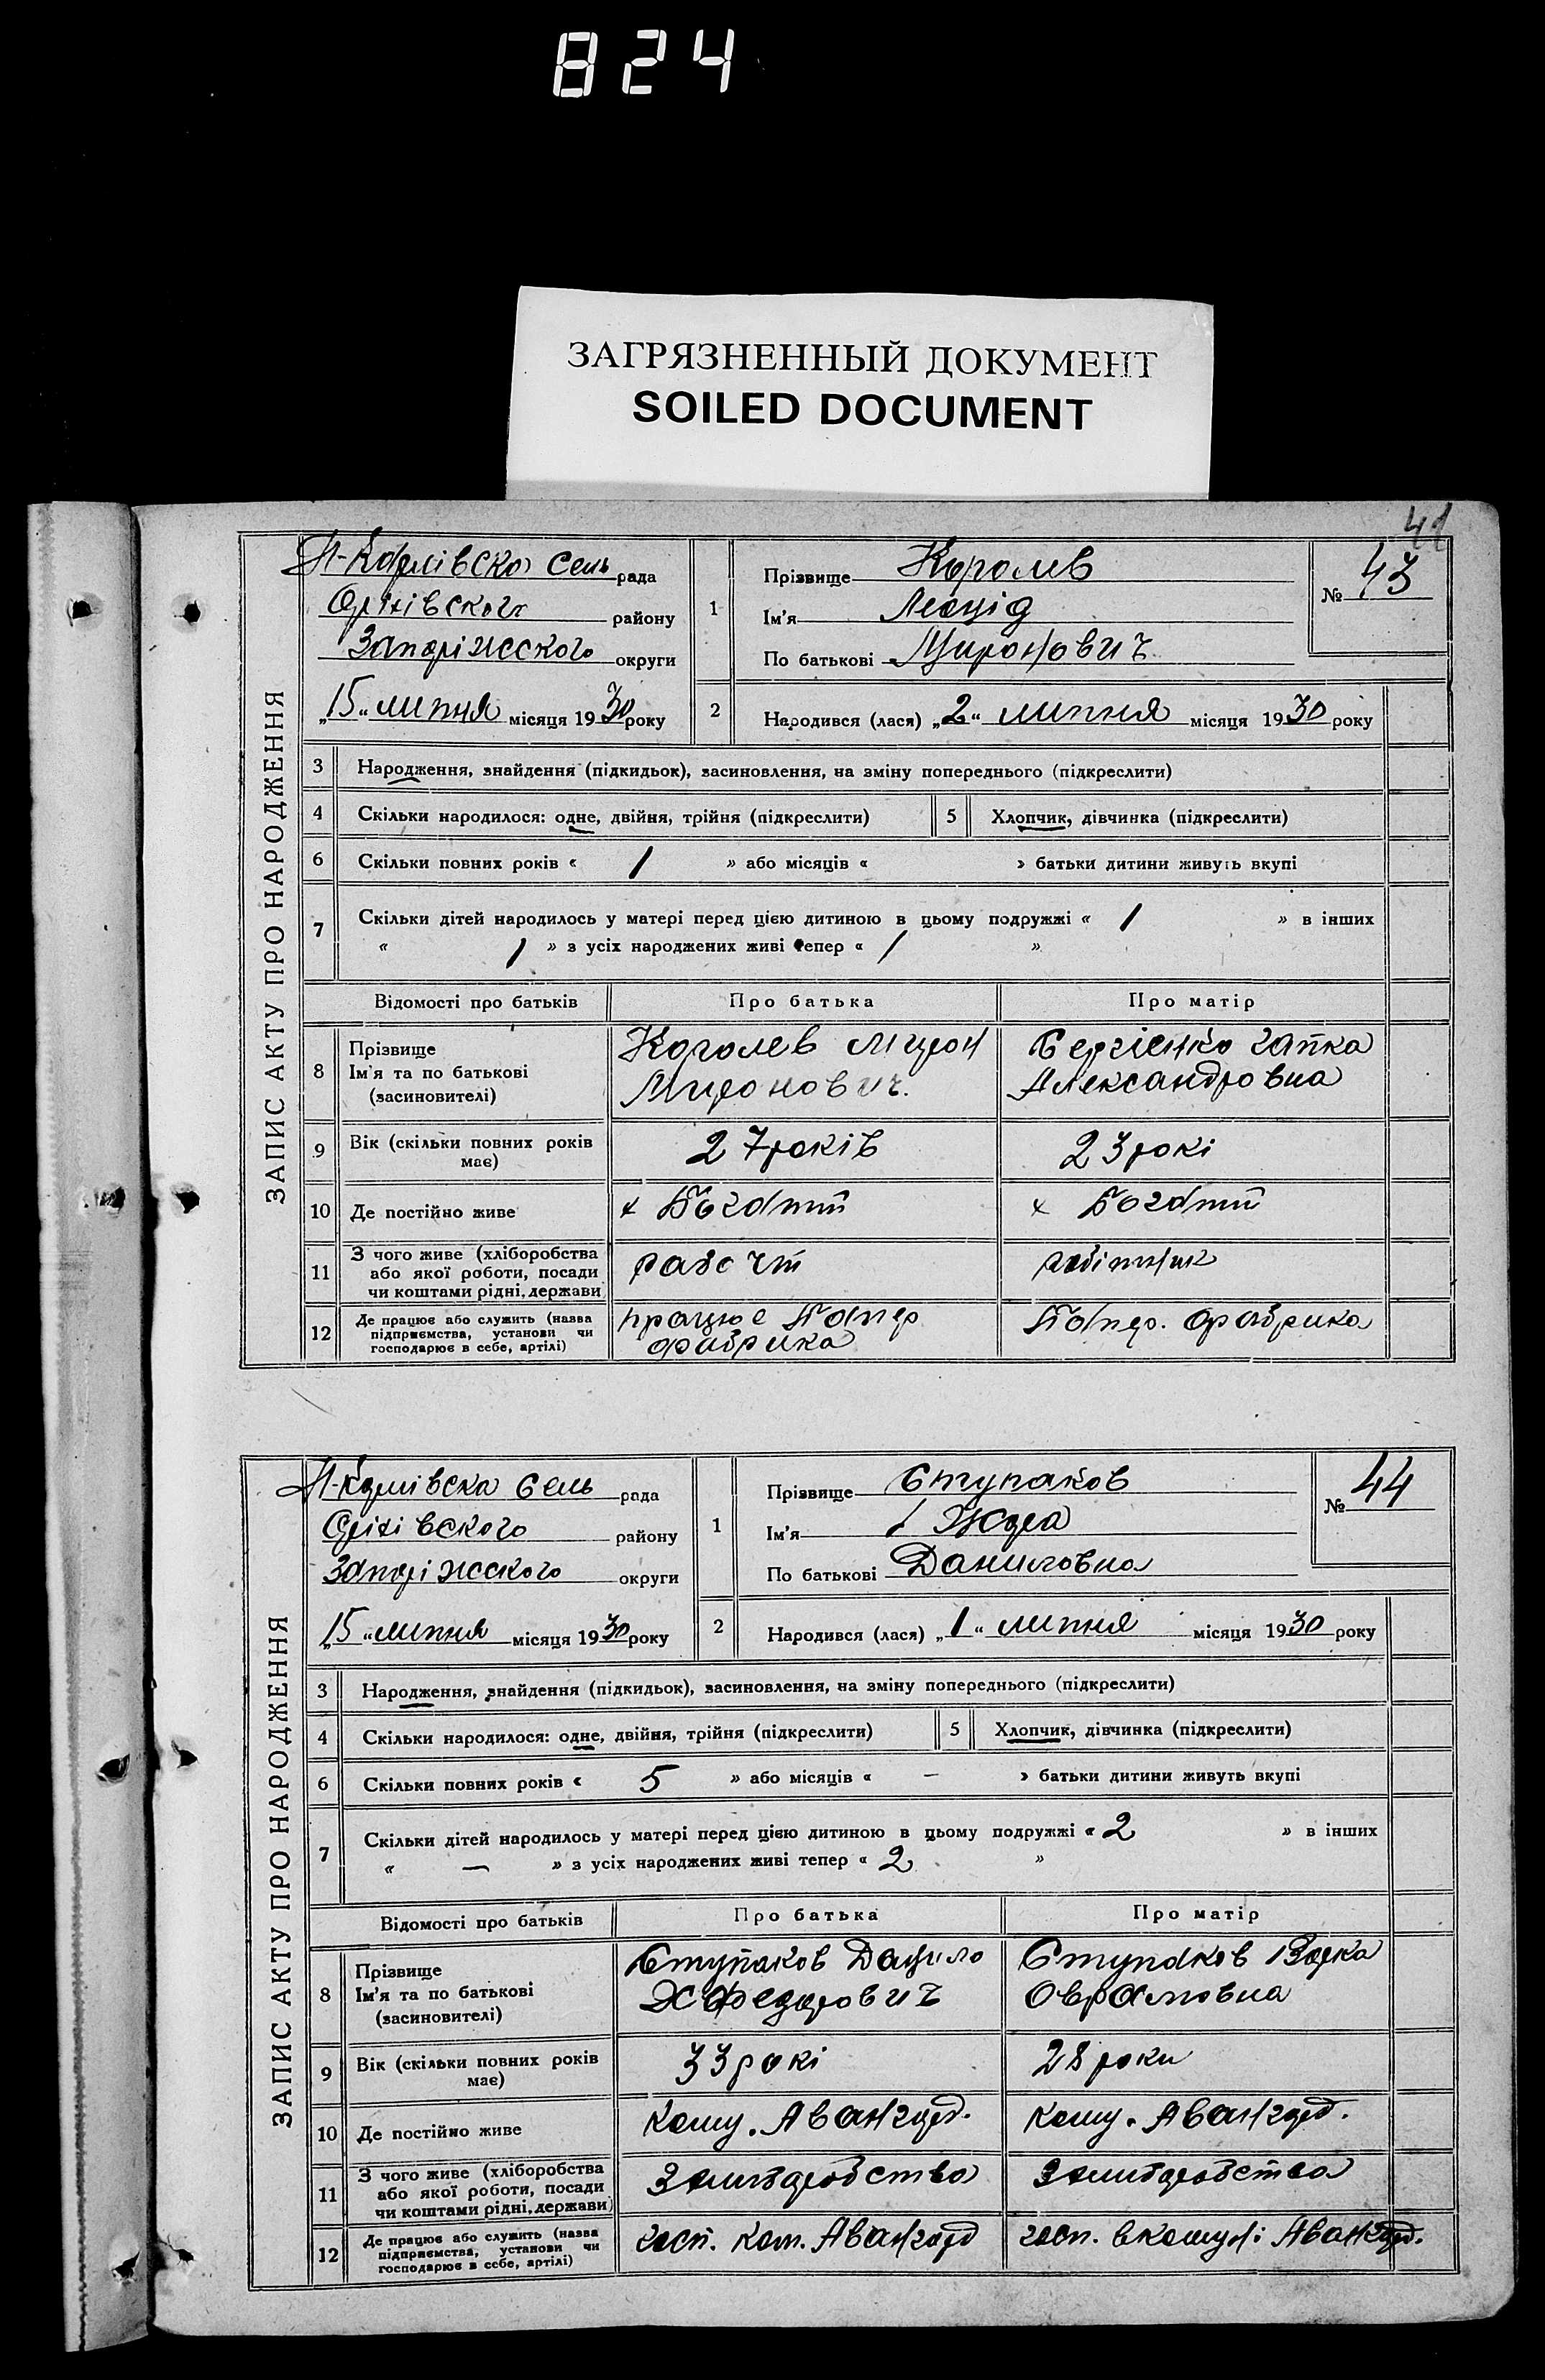 824
ЗАГРЯЗНЕННЫЙ ДОКУМЕНТ
SOILED DOCUMENT
41
ЗАПИС АКТУ ПРО НАРОДЖЕННЯ
Н-Карлівска Сель рада
Оріхівского району
Запоріжского округи
„15“ липня місяця 1930 року
1 Прізвище Королев
Ім'я Леонід
По батькові Миронович
№ 43
2 Народився (лася) „2“ липня місяця 1930 року
3 Народження, знайдення (підкидьок), засиновлення, на зміну попереднього (підкреслити)
4 Скільки народилося: одне, двійня, трійня (підкреслити) 5 Хлопчик, дівчинка (підкреслити)
6 Скільки повних років « 1 » або місяців « » батьки дитини живуть вкупі
7 Скільки дітей народилось у матері перед цією дитиною в цьому подружжі « 1 » в інших
« 1 » з усіх народжених живі тепер « 1 »
Відомості про батьків Про батька Про матір
8 Прізвище
Ім'я та по батькові
(засиновителі)
Королев Мирон
Миронович.
Александровна
9 Вік (скільки повних років
має)
27 років
23 рокі
10 Де постійно живе
х Богатий
х Богатий
11 З чого живе (хліборобства
або якої роботи, посади
чи коштами рідні, держави
рабочий
робітник
12 Де працює або служить (назва
підприємства, установи чи
господарює в себе, артілі)
працює Папер
фабрика
Папер. Фабрика
ЗАПИС АКТУ ПРО НАРОДЖЕННЯ
Н-Карлівска Сель рада
Оріхівского району
Запоріжского округи
„15“ липня місяця 1930 року
1 Прізвище Ступаков
Ім'я
По батькові Даниловна
№ 44
2 Народився (лася) „1“ липня місяця 1930 року
3 Народження, знайдення (підкидьок), засиновлення, на зміну попереднього (підкреслити)
4 Скільки народилося: одне, двійня, трійня (підкреслити) 5 Хлопчик, дівчинка (підкреслити)
6 Скільки повних років « 5 » або місяців « — » батьки дитини живуть вкупі
7 Скільки дітей народилось у матері перед цією дитиною в цьому подружжі « 2 » в інших
« — » з усіх народжених живі тепер « 2 »
Відомості про батьків Про батька Про матір
8 Прізвище
Ім'я та по батькові
(засиновителі)
Ступаков Данило
Федорович
Ступаков
Оврамовна
9 Вік (скільки повних років
має)
33 рокі
28 роки
10 Де постійно живе
Кому. Авангард.
Кому. Авангард.
11 З чого живе (хліборобства
або якої роботи, посади
чи коштами рідні, держави)
Хліборобство
Хліборобство
12 Де працює або служить (назва
підприємства, установи чи
господарює в себе, артілі)
госп. Ком. Авангард
госп. в комуні Авангард.